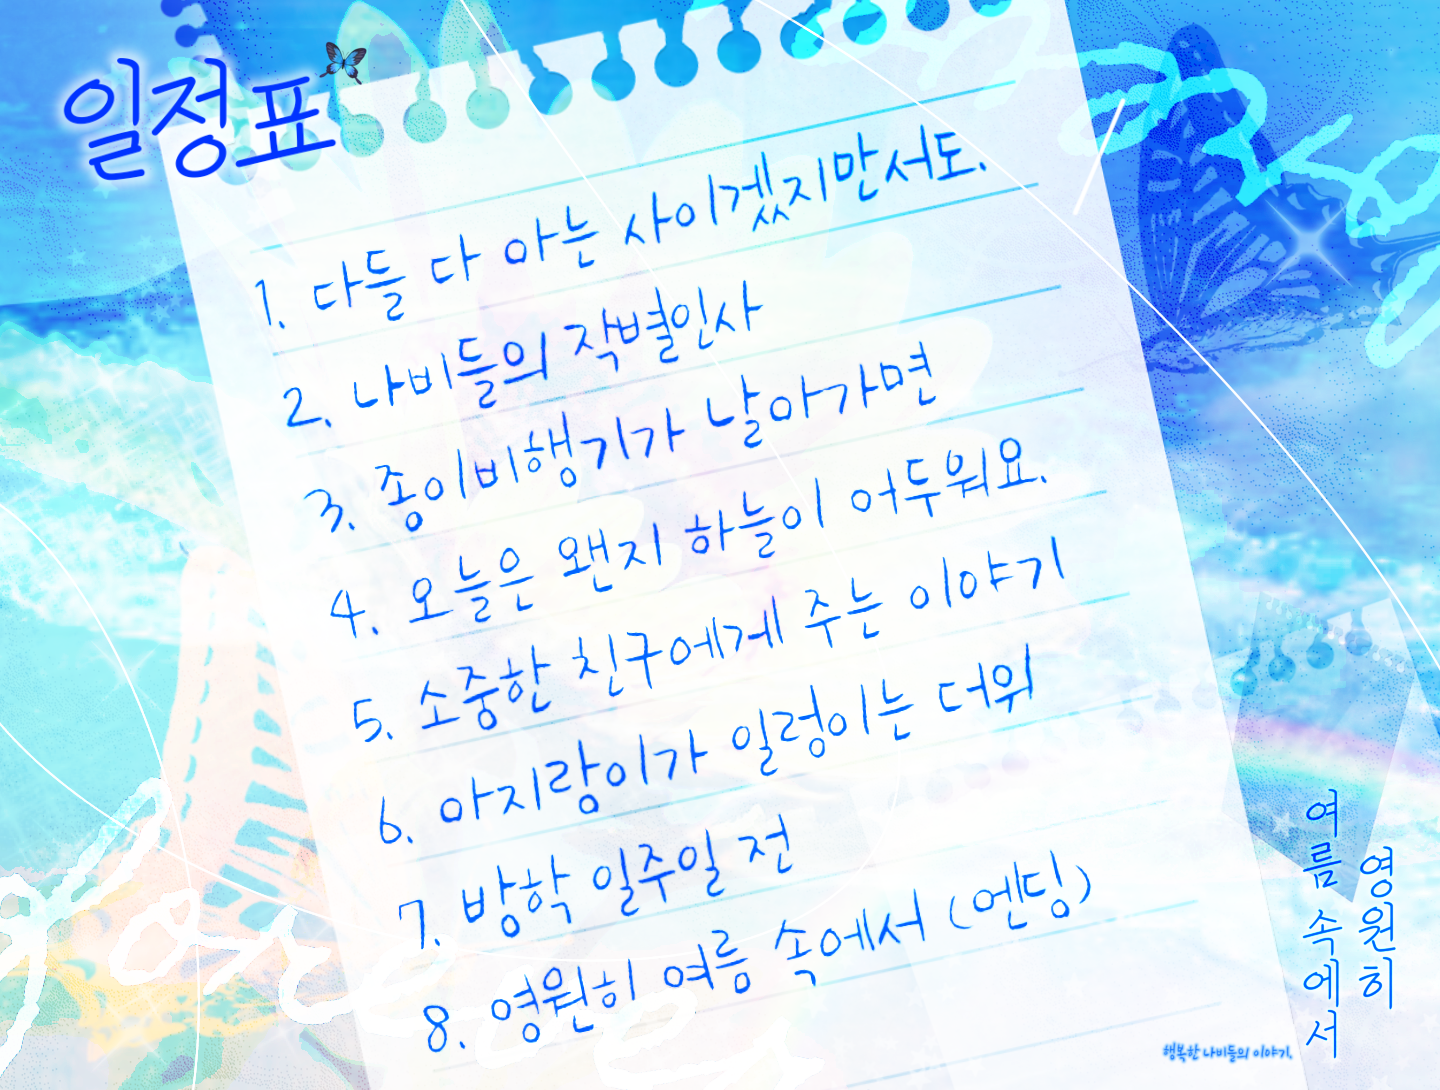 일정표
1. 다들 다 아는 사이겠지만서도.
2. 나비들의 작별인사
3. 종이비행기가 날아가면
4. 오늘은 왠지 하늘이 어두워요.
5. 소중한 친구에게 주는 이야기
6. 아지랑이가 일렁이는 더위
7. 방학 일주일 전
8. 영원히 여름 속에서 (엔딩)
영원히
여름 속에서
행복한 나비들의 이야기.